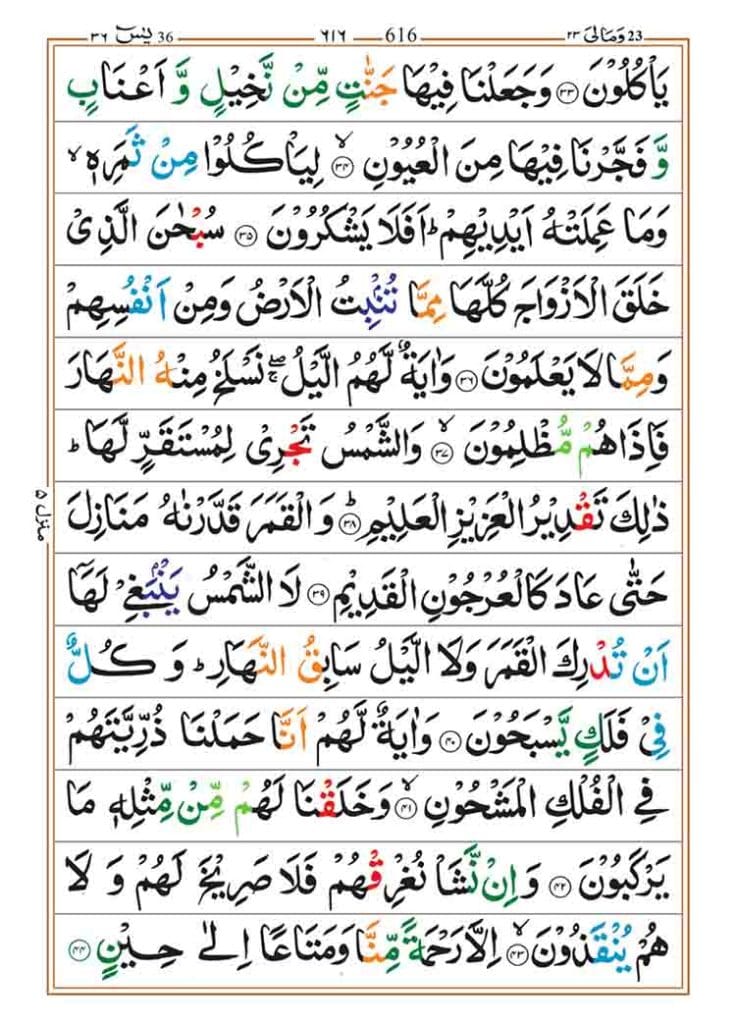 36 يٰسٓ ٣٦ ٦١٦ 616 23 وَمَالِىَ ٢٣
يَاۡكُلُوۡنَ ﴿۳۳﴾ وَجَعَلۡنَا فِيۡهَا جَنّٰتٍ مِّنۡ نَّخِيۡلٍ وَّ اَعۡنَابٍ
وَّ فَجَّرۡنَا فِيۡهَا مِنَ الۡعُيُوۡنِ ۙ﴿۳۴﴾ لِيَاۡكُلُوۡا مِنۡ ثَمَرِهٖ ۙ
وَمَا عَمِلَتۡهُ اَيۡدِيۡهِمۡ ؕ اَفَلَا يَشۡكُرُوۡنَ ﴿۳۵﴾ سُبۡحٰنَ الَّذِىۡ
خَلَقَ الۡاَزۡوَاجَ كُلَّهَا مِمَّا تُنۡۢبِتُ الۡاَرۡضُ وَمِنۡ اَنۡفُسِهِمۡ
وَمِمَّا لَا يَعۡلَمُوۡنَ ﴿۳۶﴾ وَاٰيَةٌ لَّهُمُ الَّيۡلُ ۖۚ نَسۡلَخُ مِنۡهُ النَّهَارَ
فَاِذَا هُمۡ مُّظۡلِمُوۡنَ ۙ﴿۳۷﴾ وَالشَّمۡسُ تَجۡرِىۡ لِمُسۡتَقَرٍّ لَّهَا ؕ
ذٰلِكَ تَقۡدِيۡرُ الۡعَزِيۡزِ الۡعَلِيۡمِ ؕ﴿۳۸﴾ وَالۡقَمَرَ قَدَّرۡنٰهُ مَنَازِلَ
حَتّٰى عَادَ كَالۡعُرۡجُوۡنِ الۡقَدِيۡمِ ﴿۳۹﴾ لَا الشَّمۡسُ يَنۡۢبَغِىۡ لَهَاۤ
اَنۡ تُدۡرِكَ الۡقَمَرَ وَلَا الَّيۡلُ سَابِقُ النَّهَارِ ؕ وَ كُلٌّ
فِىۡ فَلَكٍ يَّسۡبَحُوۡنَ ﴿۴۰﴾ وَاٰيَةٌ لَّهُمۡ اَنَّا حَمَلۡنَا ذُرِّيَّتَهُمۡ
فِى الۡفُلۡكِ الۡمَشۡحُوۡنِ ۙ﴿۴۱﴾ وَخَلَقۡنَا لَهُمۡ مِّنۡ مِّثۡلِهٖ مَا
يَرۡكَبُوۡنَ ﴿۴۲﴾ وَاِنۡ نَّشَاۡ نُغۡرِقۡهُمۡ فَلَا صَرِيۡخَ لَهُمۡ وَ لَا
هُمۡ يُنۡقَذُوۡنَ ۙ﴿۴۳﴾ اِلَّا رَحۡمَةً مِّنَّا وَمَتَاعًا اِلٰى حِيۡنٍ ﴿۴۴﴾
منزل ۵